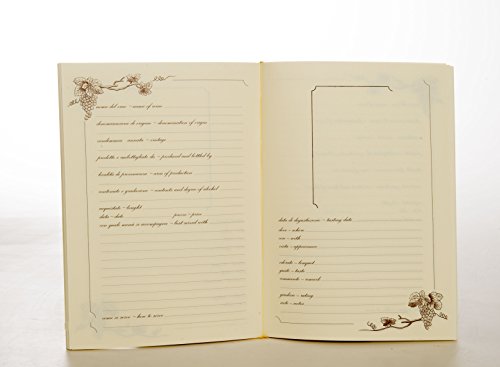 nome del vino - name of wine
denominazione di origine - denomination of origin
vendemmia - annata - vintage
prodotto e imbottigliato da - produced and bottled by
località di provenienza - area of production
materiale e gradazione - material and degree of alcohol
acquistato - bought
data - date prezzo - price
con quale menù si accompagna - best served with
come si serve - how to serve
data di degustazione - tasting date
dove - where
con - with
vista - appearance
olfatto - bouquet
gusto - taste
commento - remark
giudizio - rating
note - notes